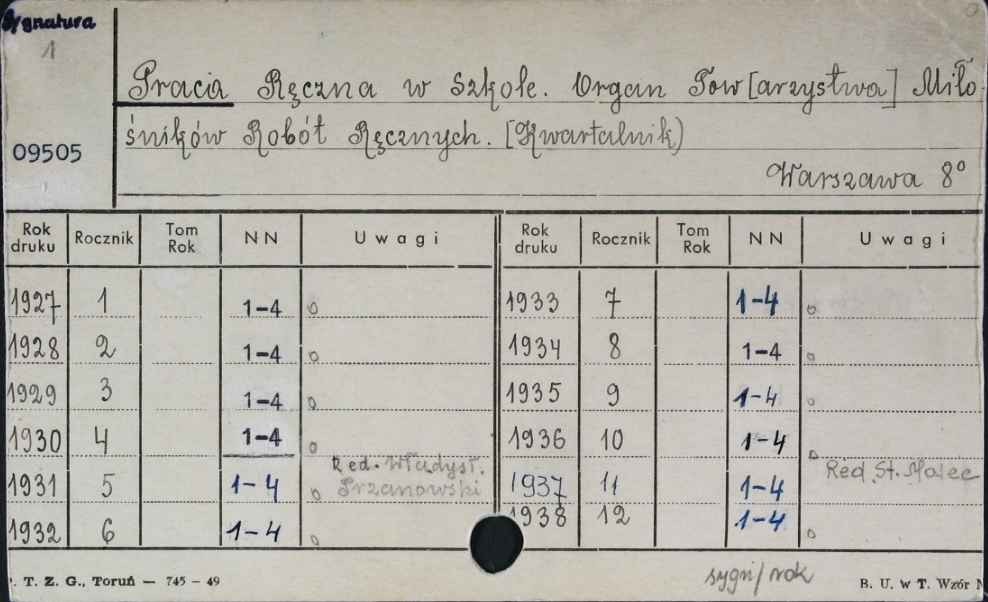 Sygnatura
1
09505
Praca Ręczna w Szkole. Organ Tow[arzystwa] Miło-
śników Robót Ręcznych. [Kwartalnik)
Warszawa 8°
Rok druku Rocznik Tom Rok NN Uwagi Rok druku Rocznik Tom Rok NN Uwagi
1927 1 1-4 0 1933 7 1-4 0
1928 2 1-4 0 1934 8 1-4 0
1929 3 1-4 0 1935 9 1-4 0
1930 4 1-4 0 1936 10 1-4 0
Red. Władysł. Red. St.
1931 5 1-4 0 Przanowski 1937 11 1-4
1932 6 1-4 0 1938 12 1-4 0
. T. Z. G., Toruń — 745 - 49 sygn/rok B. U. w T. Wzór N